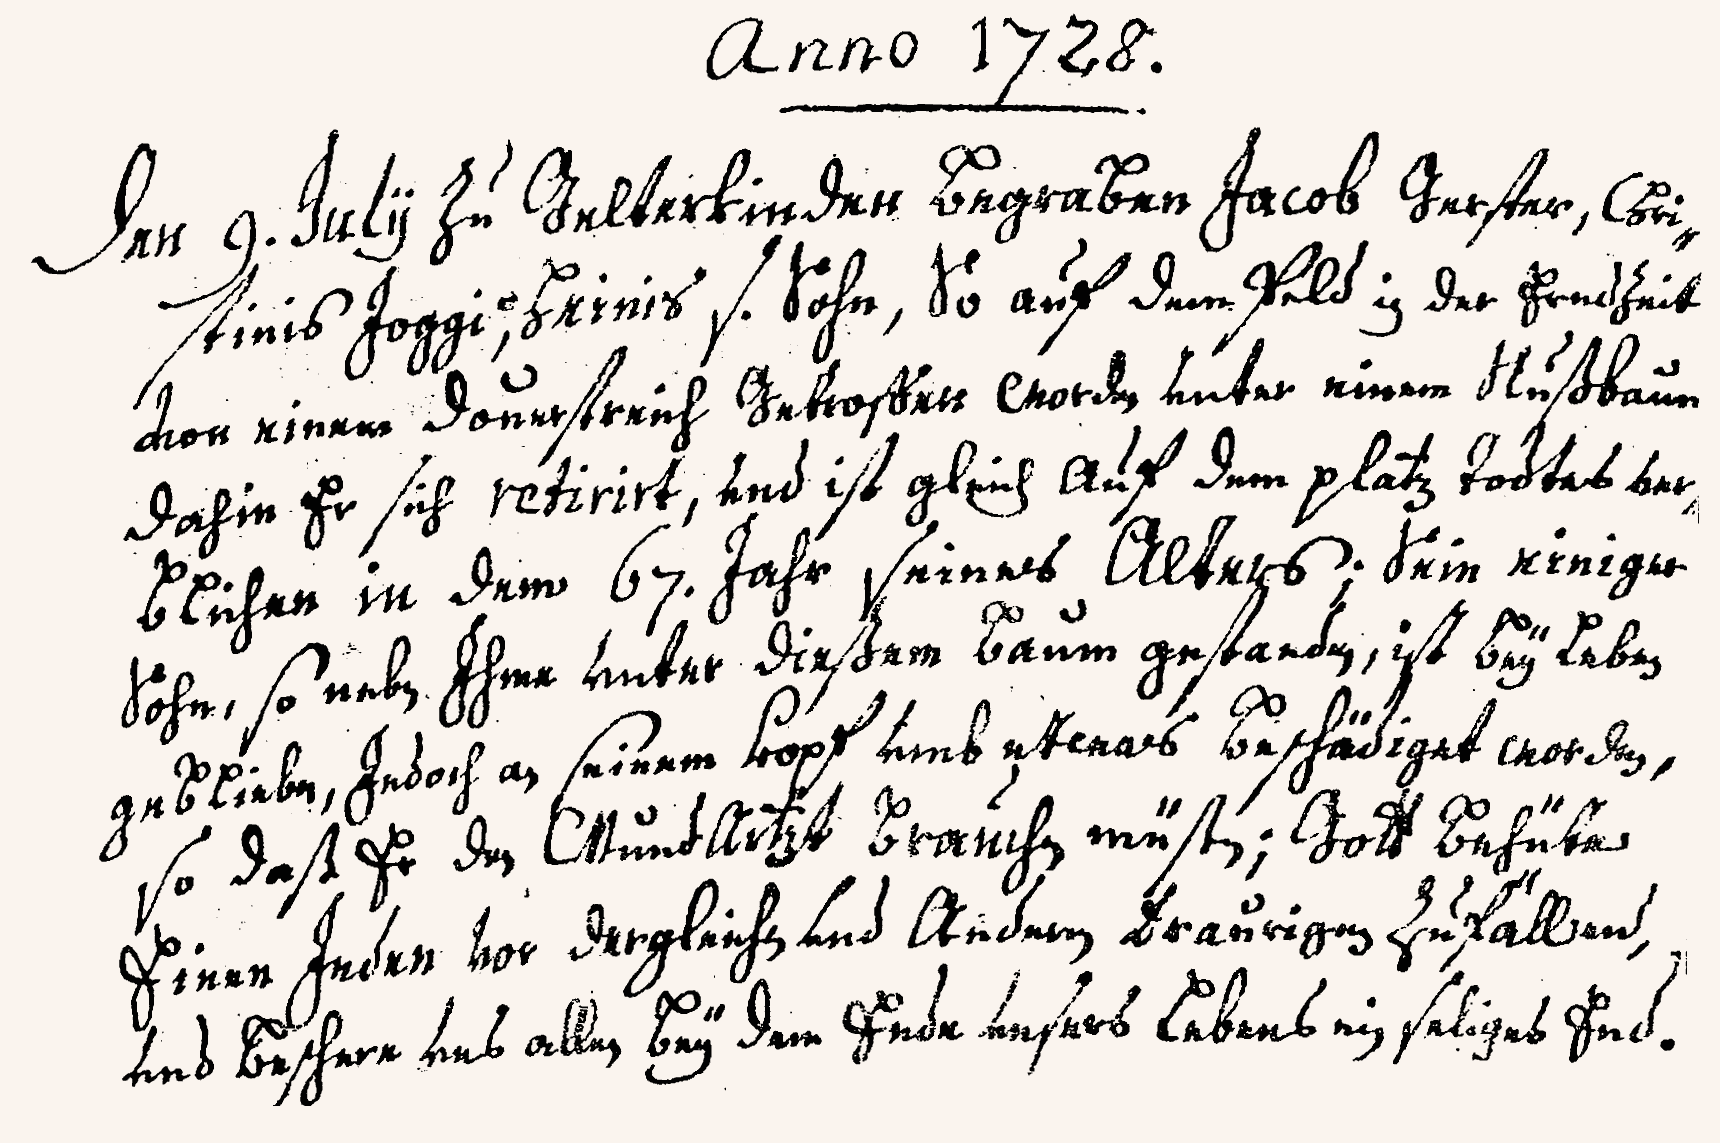 Anno 1728.
Den 9. Julÿ zu Gelterkinden begraben Jacob Gerster, Chri-
stinis Joggis, Heinis s. Sohn, So auf dem Feld in der Erndzeit
von einem Donerstreich Getroffen worden unter einem Nußbaum
dahin Er sich retirirt, und ist gleich auf dem platz todtes ver-
blichen in dem 67. Jahr seines Alters; Sein einiger
Sohn, so nebn Ihme unter dießem baum gestanden, ist beÿ Leben
gebliebn, Jedoch an seinem kopf umb etwas beschädiget worden,
so daß Er den WundArtzt brauchn müsn; Gott behüte
Einen Jeden vor dergleichn und Andern traurigen Zufällen,
und beschere uns allen beÿ dem Ende unsers Lebens ein seliges End.